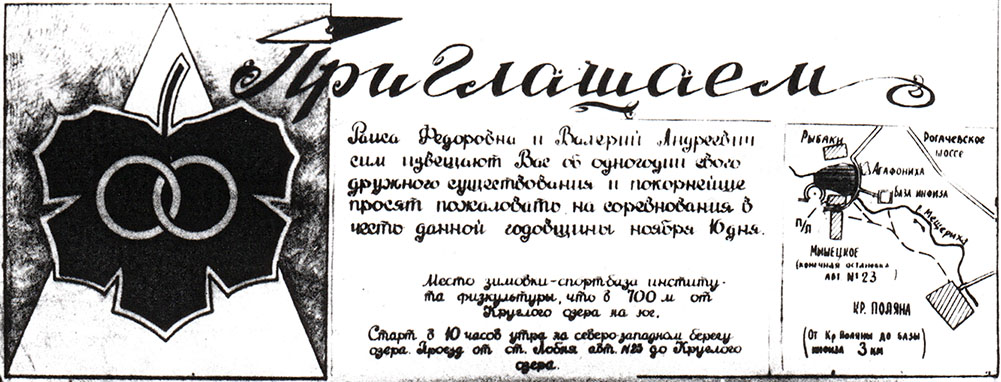 Приглашаем
Раиса Федоровна и Валерий Андреевич
сим извещают Вас об одногодии своего
дружного существования и покорнейше
просят пожаловать на соревнования в
честь данной годовщины ноября 16 дня.
Место зимовки-спортбаза институ-
та физкультуры, что в 700 м от
Круглого озера на юг.
Старт в 10 часов утра на северо-западном берегу
озера. Проезд от ст. Лобня авт. №23 до Круглого
озера.
Рыбаки
Рогачевское
шоссе
Агафониха
База инфиза
р. Мещериха
п/л
Мышецкое
(конечная остановка
авт №23)
Кр. Поляна
(От Кр Поляны до базы
инфиза 3 км)